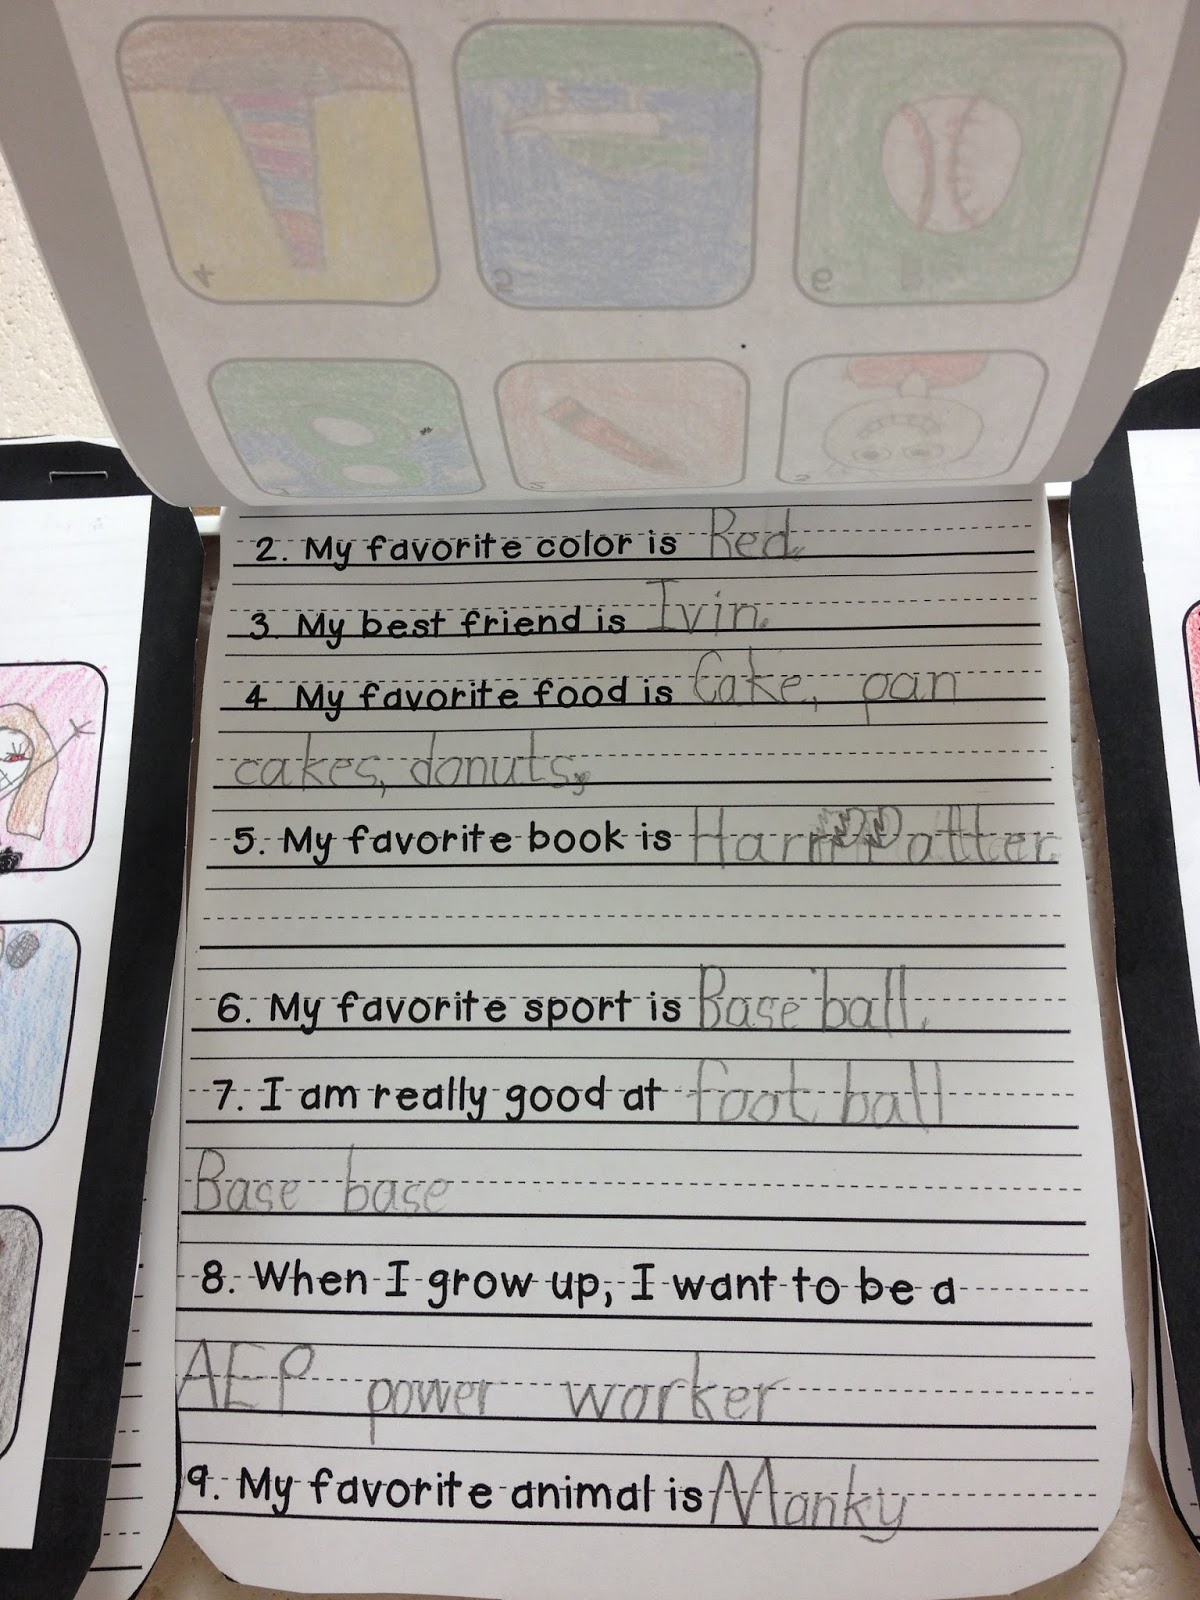 2. My favorite color is Red.
3. My best friend is Ivin.
4. My favorite food is Cake, pan
cakes, donuts.
5. My favorite book is Patter
6. My favorite sport is Base ball.
7. I am really good at foot ball
Base base
8. When I grow up, I want to be a
AEP power worker
9. My favorite animal is Manky